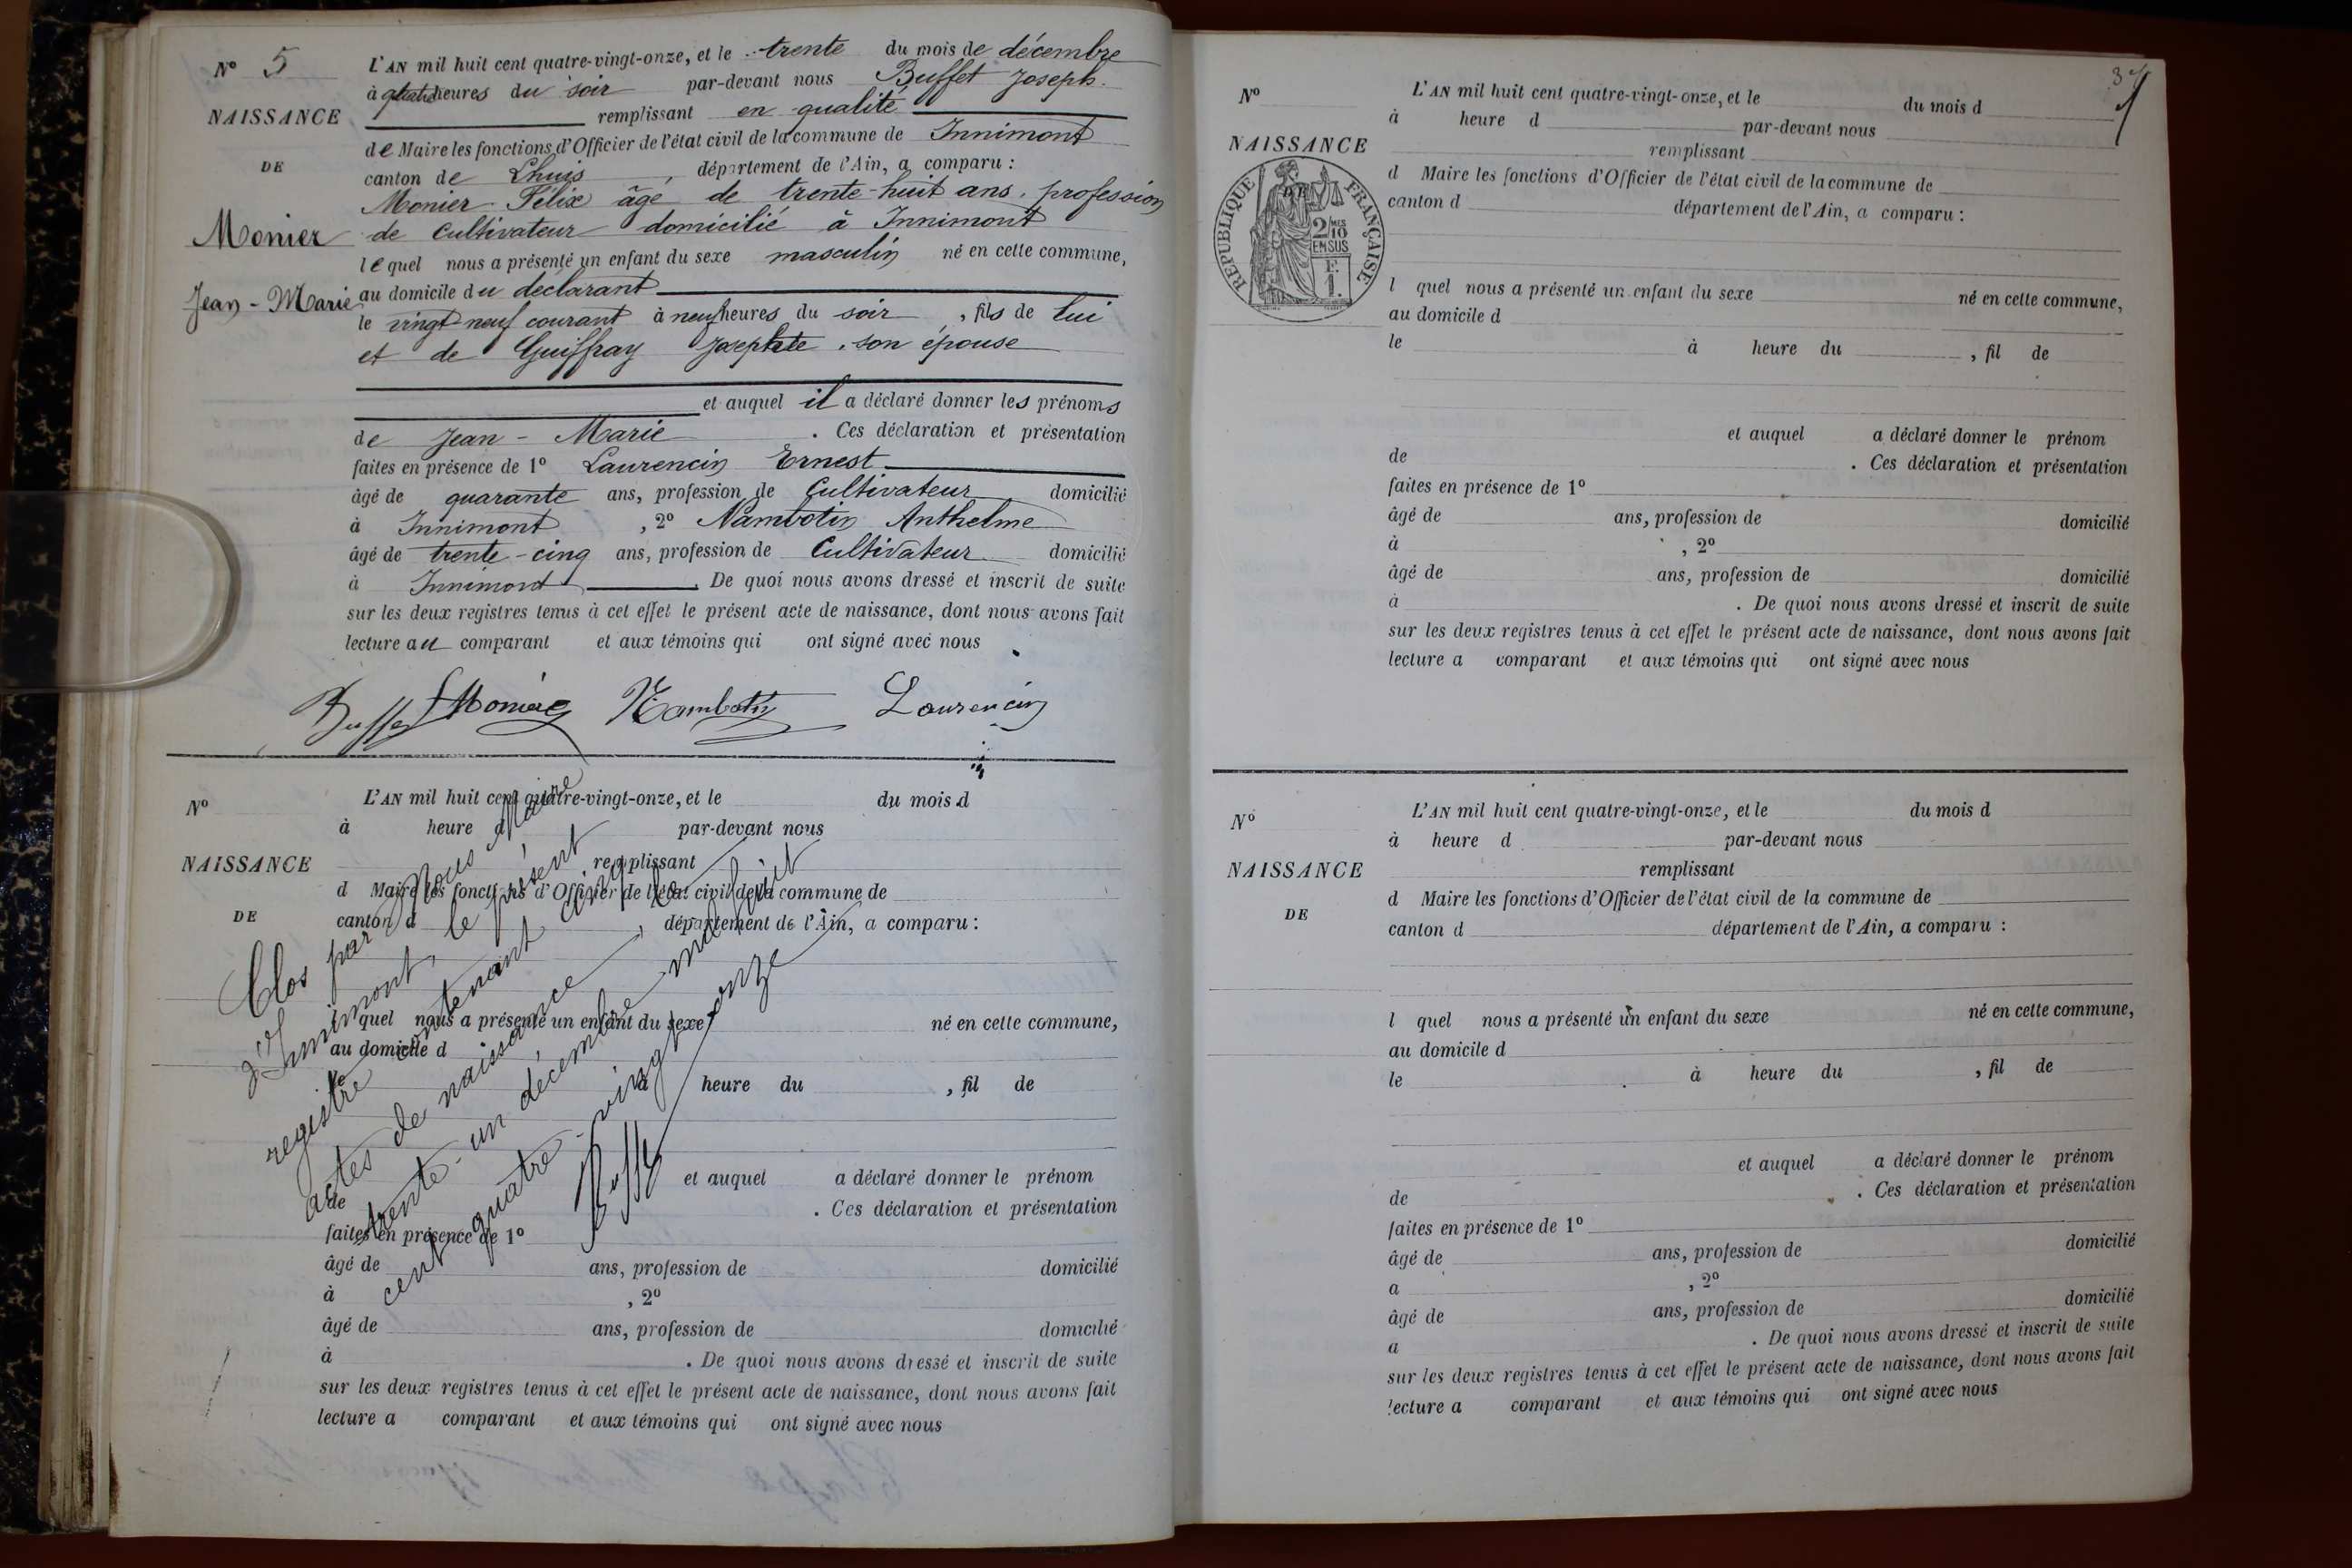 N° 5
NAISSANCE
DE
Monier
Jean-Marie
L'AN mil huit cent quatre-vingt-onze, et le trente du mois de décembre
à quatre heures du soir par-devant nous Buffet Joseph.
remplissant en qualité
de Maire les fonctions d'Officier de l'état civil de la commune de Innimont
canton de Lhuis, département de l'Ain, a comparu :
Monier Félix âgé de trente-huit ans, profession
de cultivateur domicilié à Innimont
lequel nous a présenté un enfant du sexe masculin né en cette commune,
au domicile du déclarant
le vingt-neuf courant à neuf heures du soir, fils de lui
et de Guiffray Josephte, son épouse
et auquel il a déclaré donner les prénoms
de Jean-Marie. Ces déclaration et présentation
faites en présence de 1° Laurencin Ernest
âgé de quarante ans, profession de Cultivateur domicilié
à Innimont, 2° Nambotin Anthelme
âgé de trente-cinq ans, profession de Cultivateur domicilié
à Innimont. De quoi nous avons dressé et inscrit de suite
sur les deux registres tenus à cet effet le présent acte de naissance, dont nous avons fait
lecture au comparant et aux témoins qui ont signé avec nous
Buffet FMonier Nambotin Laurencin
N°
NAISSANCE
DE
L'AN mil huit cent quatre-vingt-onze, et le du mois d
à heure d par-devant nous
remplissant
d Maire les fonctions d'Officier de l'état civil de la commune de
canton d , département de l'Ain, a comparu :
l quel nous a présenté un enfant du sexe né en cette commune,
au domicile d
le à heure du , fil de
et auquel a déclaré donner le prénom
de . Ces déclaration et présentation
faites en présence de 1°
âgé de ans, profession de domicilié
à , 2°
âgé de ans, profession de domicilié
à . De quoi nous avons dressé et inscrit de suite
sur les deux registres tenus à cet effet le présent acte de naissance, dont nous avons fait
lecture a comparant et aux témoins qui ont signé avec nous
Clos par Nous Maire
d'Innimont, le présent
registre contenant cinq
actes de naissance le
trente-un décembre mil huit
cent quatre-vingt-onze
Buffet
37
N°
NAISSANCE
RÉPUBLIQUE FRANÇAISE
2/10 MES
EN SUS
E.
1.
L'AN mil huit cent quatre-vingt-onze, et le du mois d
à heure d par-devant nous
remplissant
d Maire les fonctions d'Officier de l'état civil de la commune de
canton d département de l'Ain, a comparu :
l quel nous a présenté un enfant du sexe né en cette commune,
au domicile d
le à heure du , fil de
et auquel a déclaré donner le prénom
de . Ces déclaration et présentation
faites en présence de 1°
âgé de ans, profession de domicilié
à , 2°
âgé de ans, profession de domicilié
à . De quoi nous avons dressé et inscrit de suite
sur les deux registres tenus à cet effet le présent acte de naissance, dont nous avons fait
lecture a comparant et aux témoins qui ont signé avec nous
N°
NAISSANCE
DE
L'AN mil huit cent quatre-vingt-onze, et le du mois d
à heure d par-devant nous
remplissant
d Maire les fonctions d'Officier de l'état civil de la commune de
canton d département de l'Ain, a comparu :
l quel nous a présenté un enfant du sexe né en cette commune,
au domicile d
le à heure du , fil de
et auquel a déclaré donner le prénom
de . Ces déclaration et présentation
faites en présence de 1°
âgé de ans, profession de domicilié
a , 2°
âgé de ans, profession de domicilié
a . De quoi nous avons dressé et inscrit de suite
sur les deux registres tenus à cet effet le présent acte de naissance, dont nous avons fait
lecture a comparant et aux témoins qui ont signé avec nous